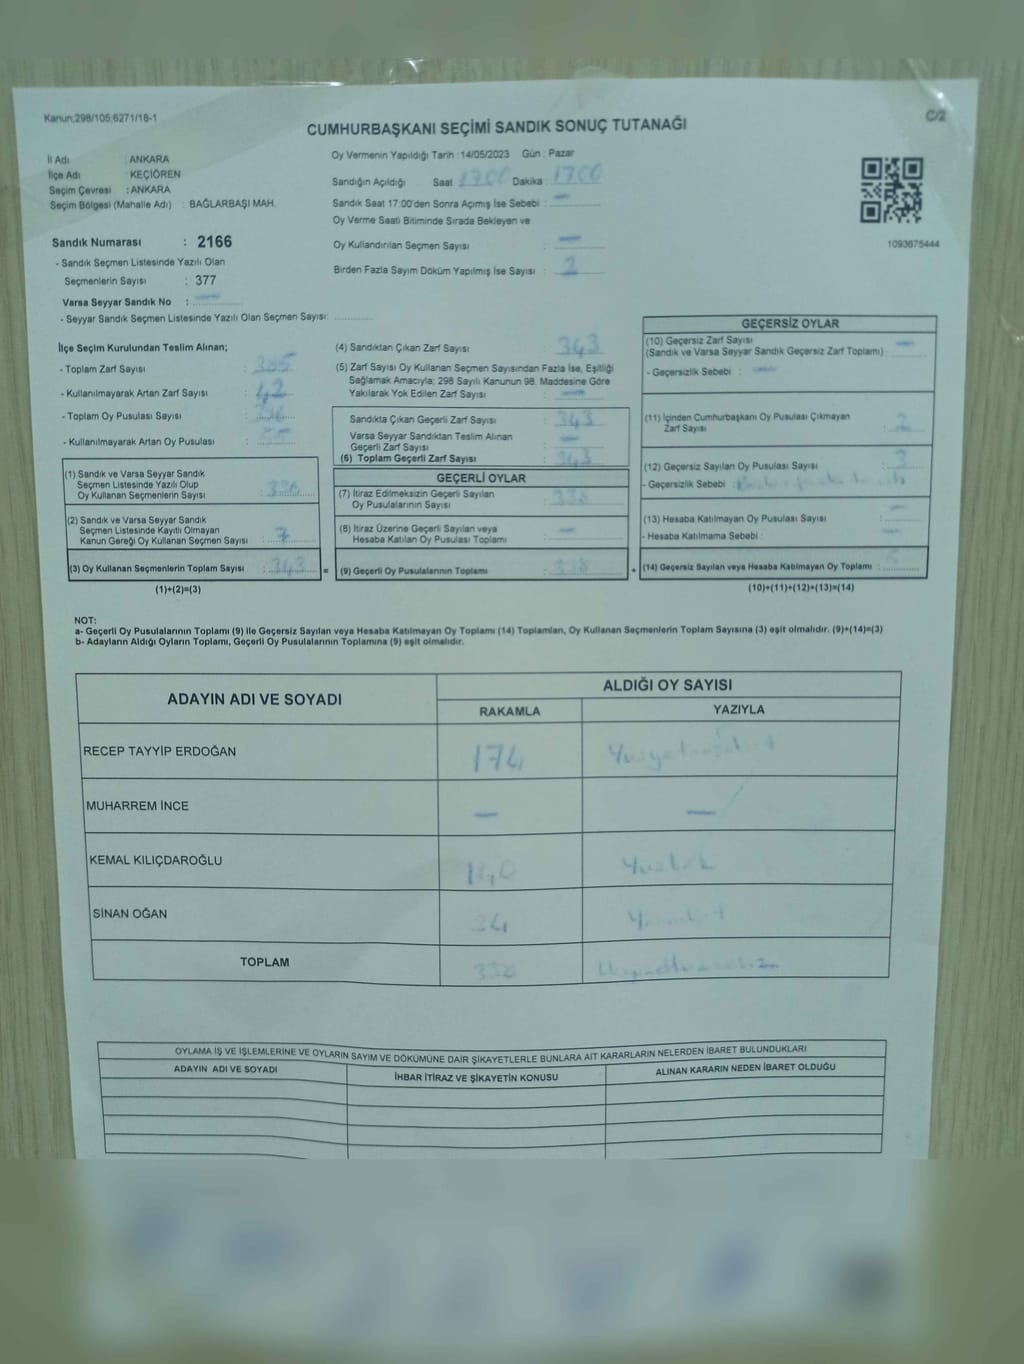 Kanun:298/105;6271/18-1
C/2
CUMHURBAŞKANI SEÇİMİ SANDIK SONUÇ TUTANAĞI
İl Adı : ANKARA
İlçe Adı : KEÇİÖREN
Seçim Çevresi : ANKARA
Seçim Bölgesi (Mahalle Adı) : BAĞLARBAŞI MAH.
Sandık Numarası : 2166
- Sandık Seçmen Listesinde Yazılı Olan
Seçmenlerin Sayısı : 377
Varsa Seyyar Sandık No : —
- Seyyar Sandık Seçmen Listesinde Yazılı Olan Seçmen Sayısı:
Oy Vermenin Yapıldığı Tarih : 14/05/2023 Gün : Pazar
Sandığın Açıldığı Saat 1700 Dakika : 1700
Sandık Saat 17:00'den Sonra Açımış İse Sebebi : —
Oy Verme Saati Bitiminde Sırada Bekleyen ve
Oy Kullandırılan Seçmen Sayısı : —
Birden Fazla Sayım Döküm Yapılmış İse Sayısı : 2
1093675444
İlçe Seçim Kurulundan Teslim Alınan;
- Toplam Zarf Sayısı : 385
- Kullanılmayarak Artan Zarf Sayısı : 42
- Toplam Oy Pusulası Sayısı :
- Kullanılmayarak Artan Oy Pusulası :
(1) Sandık ve Varsa Seyyar Sandık
Seçmen Listesinde Yazılı Olup
Oy Kullanan Seçmenlerin Sayısı : 336
(2) Sandık ve Varsa Seyyar Sandık
Seçmen Listesinde Kayıtlı Olmayan
Kanun Gereği Oy Kullanan Seçmen Sayısı : 7
(3) Oy Kullanan Seçmenlerin Toplam Sayısı : 343
(1)+(2)=(3)
=
(4) Sandıktan Çıkan Zarf Sayısı : 343
(5) Zarf Sayısı Oy Kullanan Seçmen Sayısından Fazla İse, Eşitliği
Sağlamak Amacıyla; 298 Sayılı Kanunun 98. Maddesine Göre
Yakılarak Yok Edilen Zarf Sayısı : —
Sandıkta Çıkan Geçerli Zarf Sayısı : 343
Varsa Seyyar Sandıktan Teslim Alınan
Geçerli Zarf Sayısı : —
(6) Toplam Geçerli Zarf Sayısı : 343
GEÇERLİ OYLAR
(7) İtiraz Edilmeksizin Geçerli Sayılan
Oy Pusulalarının Sayısı : 338
(8) İtiraz Üzerine Geçerli Sayılan veya
Hesaba Katılan Oy Pusulası Toplamı : —
(9) Geçerli Oy Pusulalarının Toplamı : 338
+
GEÇERSİZ OYLAR
(10) Geçersiz Zarf Sayısı
(Sandık ve Varsa Seyyar Sandık Geçersiz Zarf Toplamı) : —
- Geçersizlik Sebebi : —
(11) İçinden Cumhurbaşkanı Oy Pusulası Çıkmayan
Zarf Sayısı : 2
(12) Geçersiz Sayılan Oy Pusulası Sayısı : 3
- Geçersizlik Sebebi :
(13) Hesaba Katılmayan Oy Pusulası Sayısı : —
- Hesaba Katılmama Sebebi : —
(14) Geçersiz Sayılan veya Hesaba Katılmayan Oy Toplamı : 5
(10)+(11)+(12)+(13)=(14)
NOT:
a- Geçerli Oy Pusulalarının Toplamı (9) ile Geçersiz Sayılan veya Hesaba Katılmayan Oy Toplamı (14) Toplamları, Oy Kullanan Seçmenlerin Toplam Sayısına (3) eşit olmalıdır. (9)+(14)=(3)
b- Adayların Aldığı Oyların Toplamı, Geçerli Oy Pusulalarının Toplamına (9) eşit olmalıdır.
ADAYIN ADI VE SOYADI
ALDIĞI OY SAYISI
RAKAMLA YAZIYLA
RECEP TAYYİP ERDOĞAN 174
MUHARREM İNCE — —
KEMAL KILIÇDAROĞLU 140
SİNAN OĞAN 24
TOPLAM 338
OYLAMA İŞ VE İŞLEMLERİNE VE OYLARIN SAYIM VE DÖKÜMÜNE DAİR ŞİKAYETLERLE BUNLARA AİT KARARLARIN NELERDEN İBARET BULUNDUKLARI
ADAYIN ADI VE SOYADI
İHBAR İTİRAZ VE ŞİKAYETİN KONUSU
ALINAN KARARIN NEDEN İBARET OLDUĞU